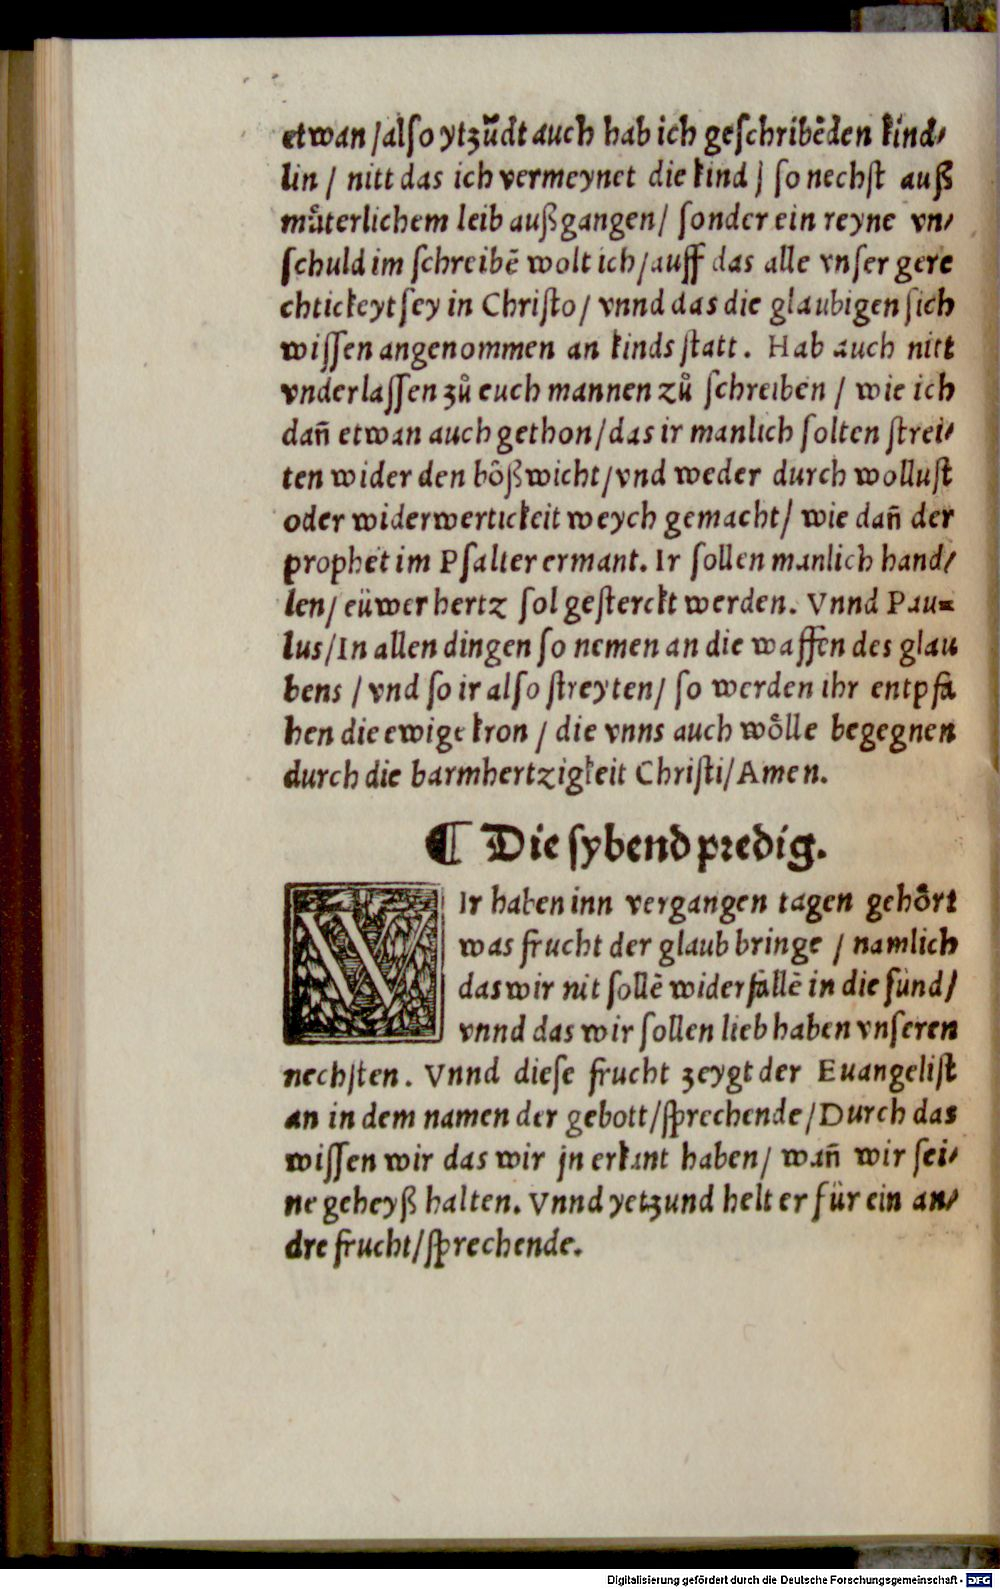 etwan / also ytzũdt auch hab ich geschribẽ den kind⸗
lin / nitt das ich vermeynet die kind / so nechst auß
muͤterlichem leib außgangen / sonder ein reyne vn⸗
schuld im schreibẽ wolt ich / auff das alle vnser gere
chtickeyt sey in Christo / vnnd das die glaubigen sich
wissen angenommen an kinds statt. Hab auch nitt
vnderlassen zů euch mannen zů schreiben / wie ich
dañ etwan auch gethon / das ir manlich solten strei⸗
ten wider den boͤßwicht / vnd weder durch wollust
oder widerwertickeit weych gemacht / wie dañ der
prophet im Psalter ermant. Ir sollen manlich hand⸗
len / eüwer hertz sol gesterckt werden. Vnnd Pau⸗
lus / In allen dingen so nemen an die waffen des glau
bens / vnd so ir also streyten / so werden ihr entpfa
hen die ewige kron / die vnns auch woͤlle begegnen
durch die barmhertzigkeit Christi / Amen.
¶ Die sybend predig.
WIr haben inn vergangen tagen gehoͤrt
was frucht der glaub bringe / namlich
das wir nit sollẽ widerfallẽ in die sünd /
vnnd das wir sollen lieb haben vnseren
nechsten. Vnnd diese frucht zeygt der Euangelist
an in dem namen der gebott / sprechende / Durch das
wissen wir das wir jn erkant haben / wañ wir sei⸗
ne geheyß halten. Vnnd yetzund helt er für ein an⸗
dre frucht / sprechende.
Digitalisierung gefördert durch die Deutsche Forschungsgemeinschaft - DFG